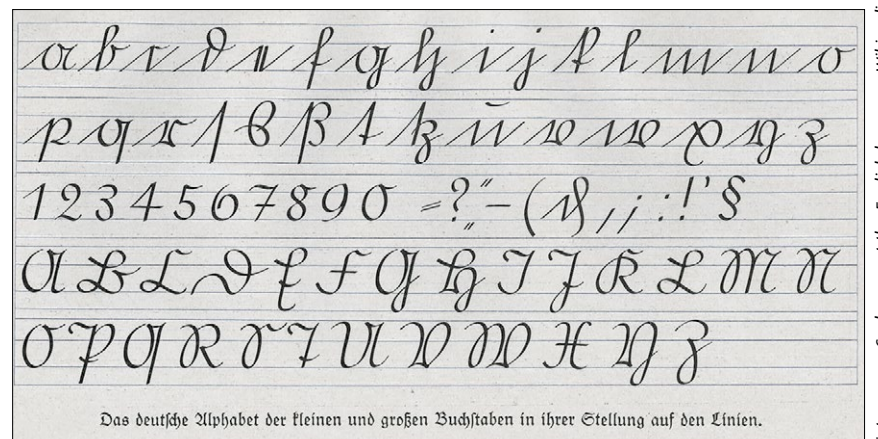 a b c d e f g h i j k l m n o
p q r ſ s ß t tz u v w x y z
1 2 3 4 5 6 7 8 9 0 = ? „ “ – ( & , ; : ! ' §
A B C D E F G H I J K L M N
O P Q R S T U V W X Y Z
Das deutſche Alphabet der kleinen und großen Buchſtaben in ihrer Stellung auf den Linien.